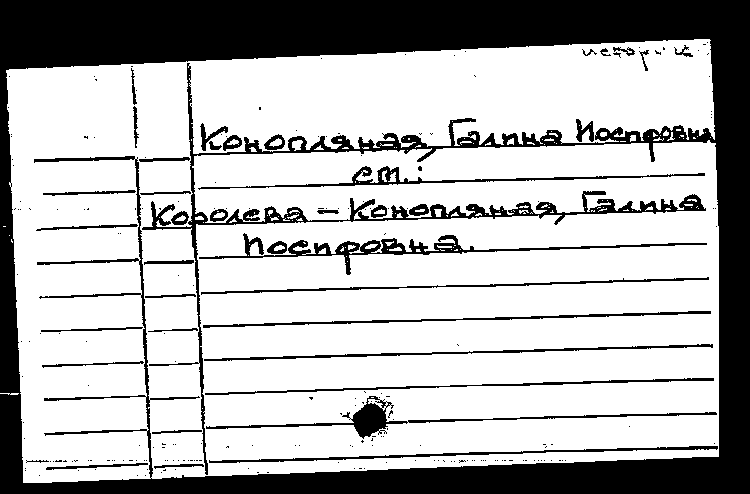 историк
Конопляная, Галина Иосифовна
см.:
Королева - Конопляная, Галина
Иосифовна.